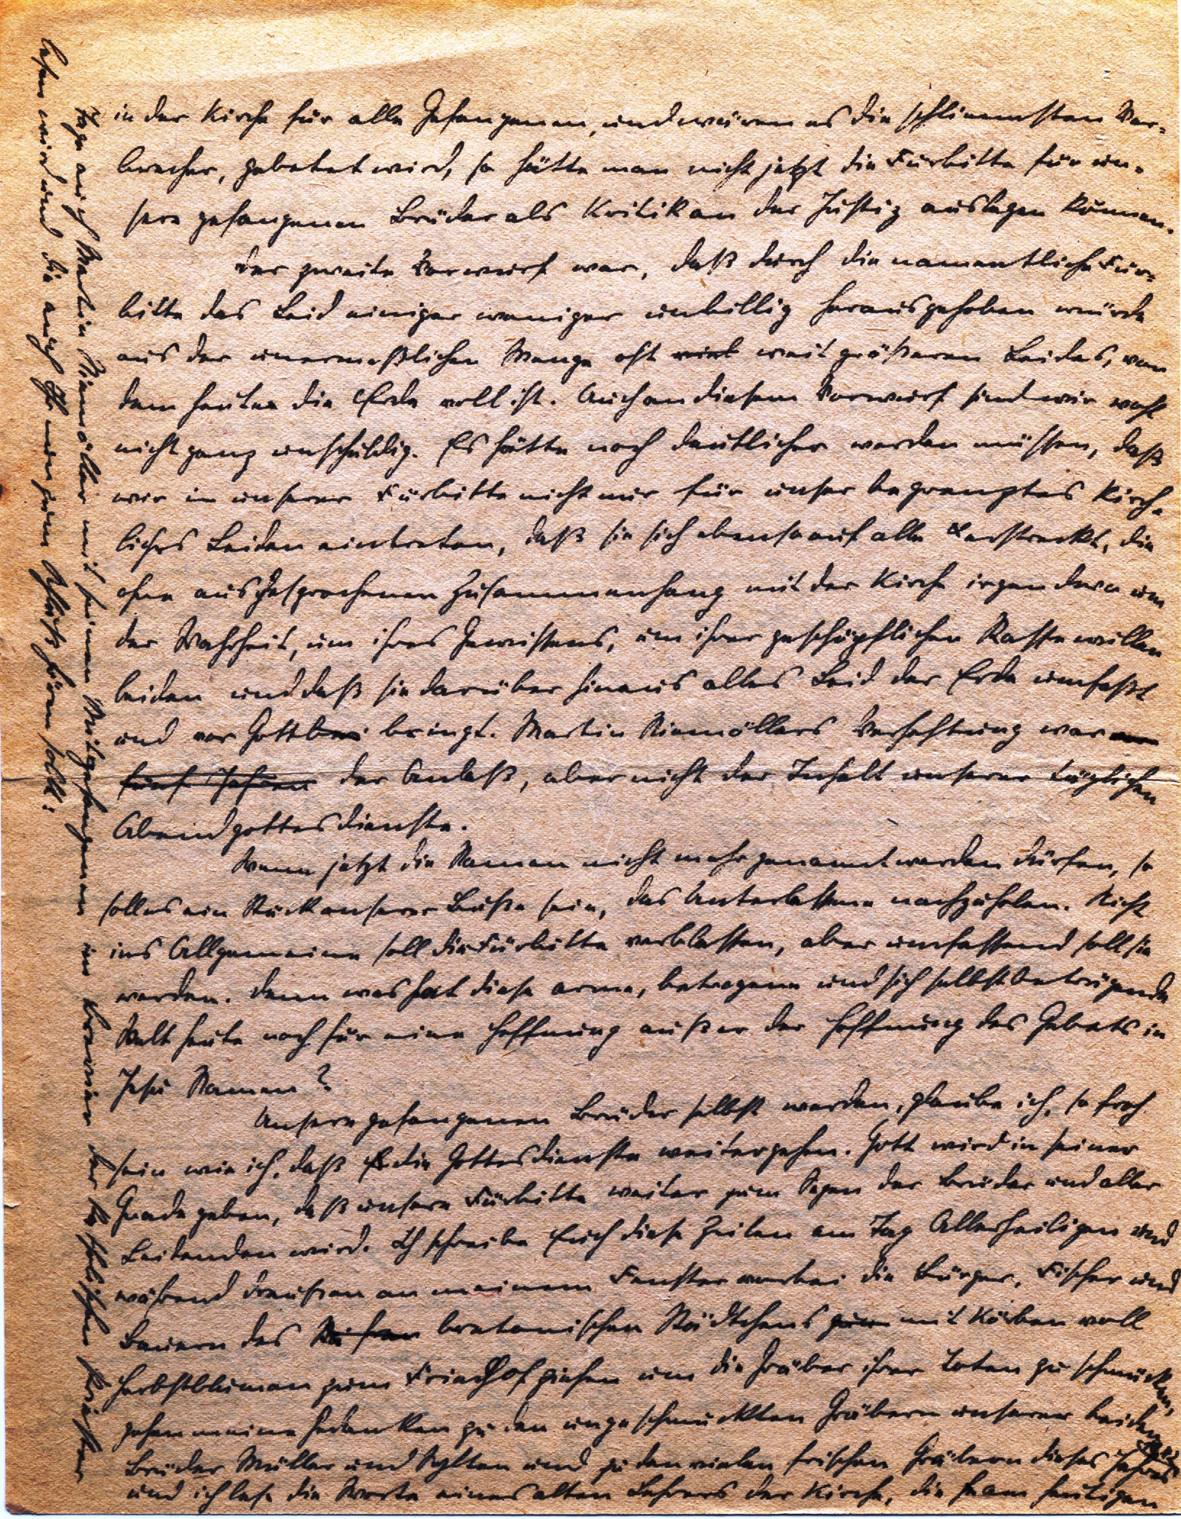 in der Kirche für alle Gefangenen, und wären es die schlimmsten Ver-
brecher, gebetet wird, so hätte man nicht jetzt die Fürbitte für un-
sere gefangenen Brüder als Kritik an der Justiz auslegen können.
Der zweite Vorwurf war, daß durch die namentliche Für-
bitte das Leid einiger weniger unbillig herausgehoben würde
aus der unermeßlichen Menge oft weit größeren Leides, von
dem heute die Erde voll ist. Auch an diesem Vorwurf sind wir wohl
nicht ganz unschuldig. Es hätte noch deutlicher werden müssen, daß
wir in unserer Fürbitte nicht nur für unser begrenztes kirch-
liches Leiden eintreten, daß sie sich ebenso auf alle erstreckt, die
ohne ausgesprochenen Zusammenhang mit der Kirche irgendwo um
der Wahrheit, um ihres Gewissens, um ihrer geschöpflichen Rasse willen
leiden und daß sie darüber hinaus alles Leid der Erde umfaßt
und vor Gott bringt. Martin Niemöllers Verhaftung war
fünf Jahren der Anlaß, aber nicht der Inhalt unserer täglichen
Abendgottesdienste.
Wenn jetzt die Namen nicht mehr genannt werden dürfen, so
soll es ein Stück unserer Buße sein, das Unterlassene nachzuholen. Nicht
ins Allgemeine soll die Fürbitte verblassen, aber umfassend soll sie
werden. Denn was hat diese arme, betrogene und sich selbst betrügende
Welt heute noch für eine Hoffnung außer der Hoffnung des Gebets in
Jesu Namen?
Unsere gefangenen Brüder selbst werden, glaube ich, so froh
sein wie ich, daß die Gottesdienste weitergehen. Gott wird in seiner
Gnade geben, daß unsere Fürbitte weiter zum Segen der Brüder und aller
Leidenden wird. Ich schreibe Euch diese Zeilen am Tag Allerheiligen und
während draußen an meinem Fenster vorbei die Bürger, Fischer und
Bauern des bretonischen Städtchens mit Körben voll
Herbstblumen zum Friedhof ziehen um die Gräber ihrer Toten zu schmücken,
gehen meine Gedanken zu den ungeschmückten Gräbern unserer beiden
Brüder Müller und Sylten und zu den vielen frischen Gräbern dieses Jahres
und ich lese die Worte eines alten Lehrers der Kirche, die am heutigen
Tage auch Martin Niemöller mit seinen Mitgefangenen im Brevier der katholischen Priester
lesen wird und die auch Ihr zum Schluß hören sollt: